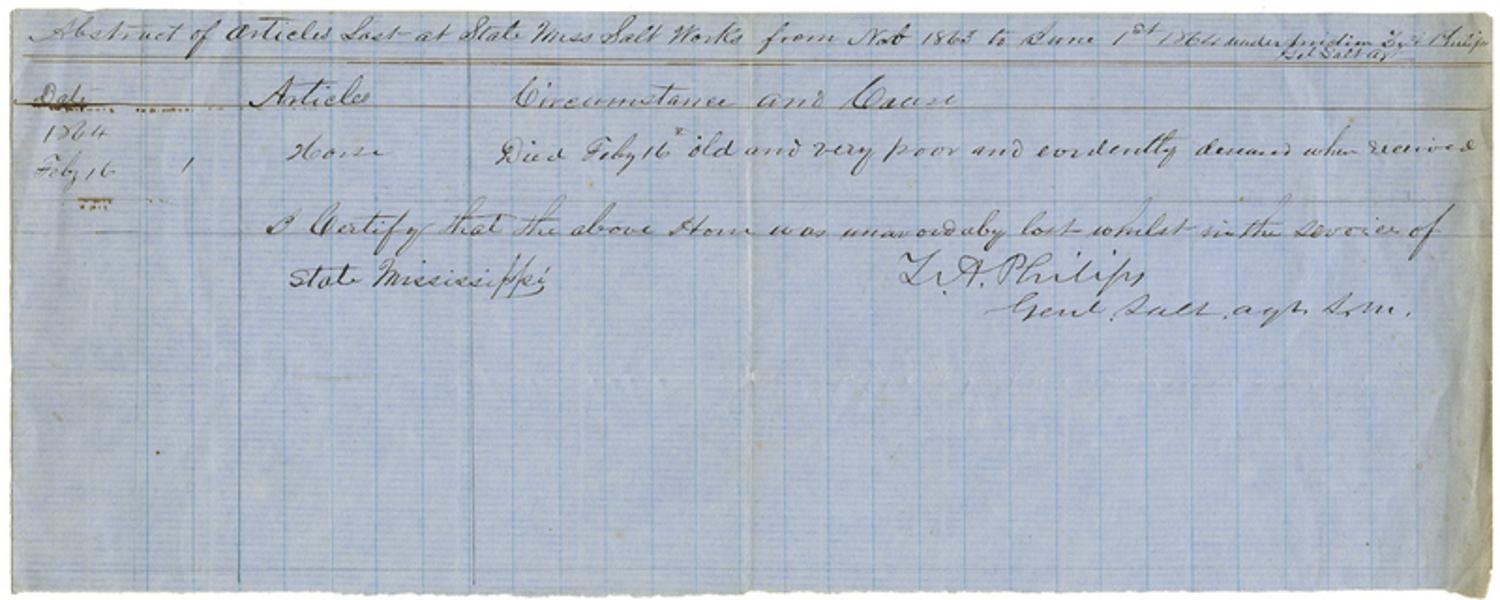 Abstract of Articles Lost at State Miss Salt Works from Nov 1863 to June 1st 1864 under
Gel Salt Ag
Date Articles Circumstance and Cause
1864
Feby 16 1 Horse Died Feby 16 old and very poor and evidently diseased when received
I Certify that the above Horse was unavoidaby lost whilst in the service of
State Mississippi
T. A. Philips
Genl. Salt. agt. S.M.